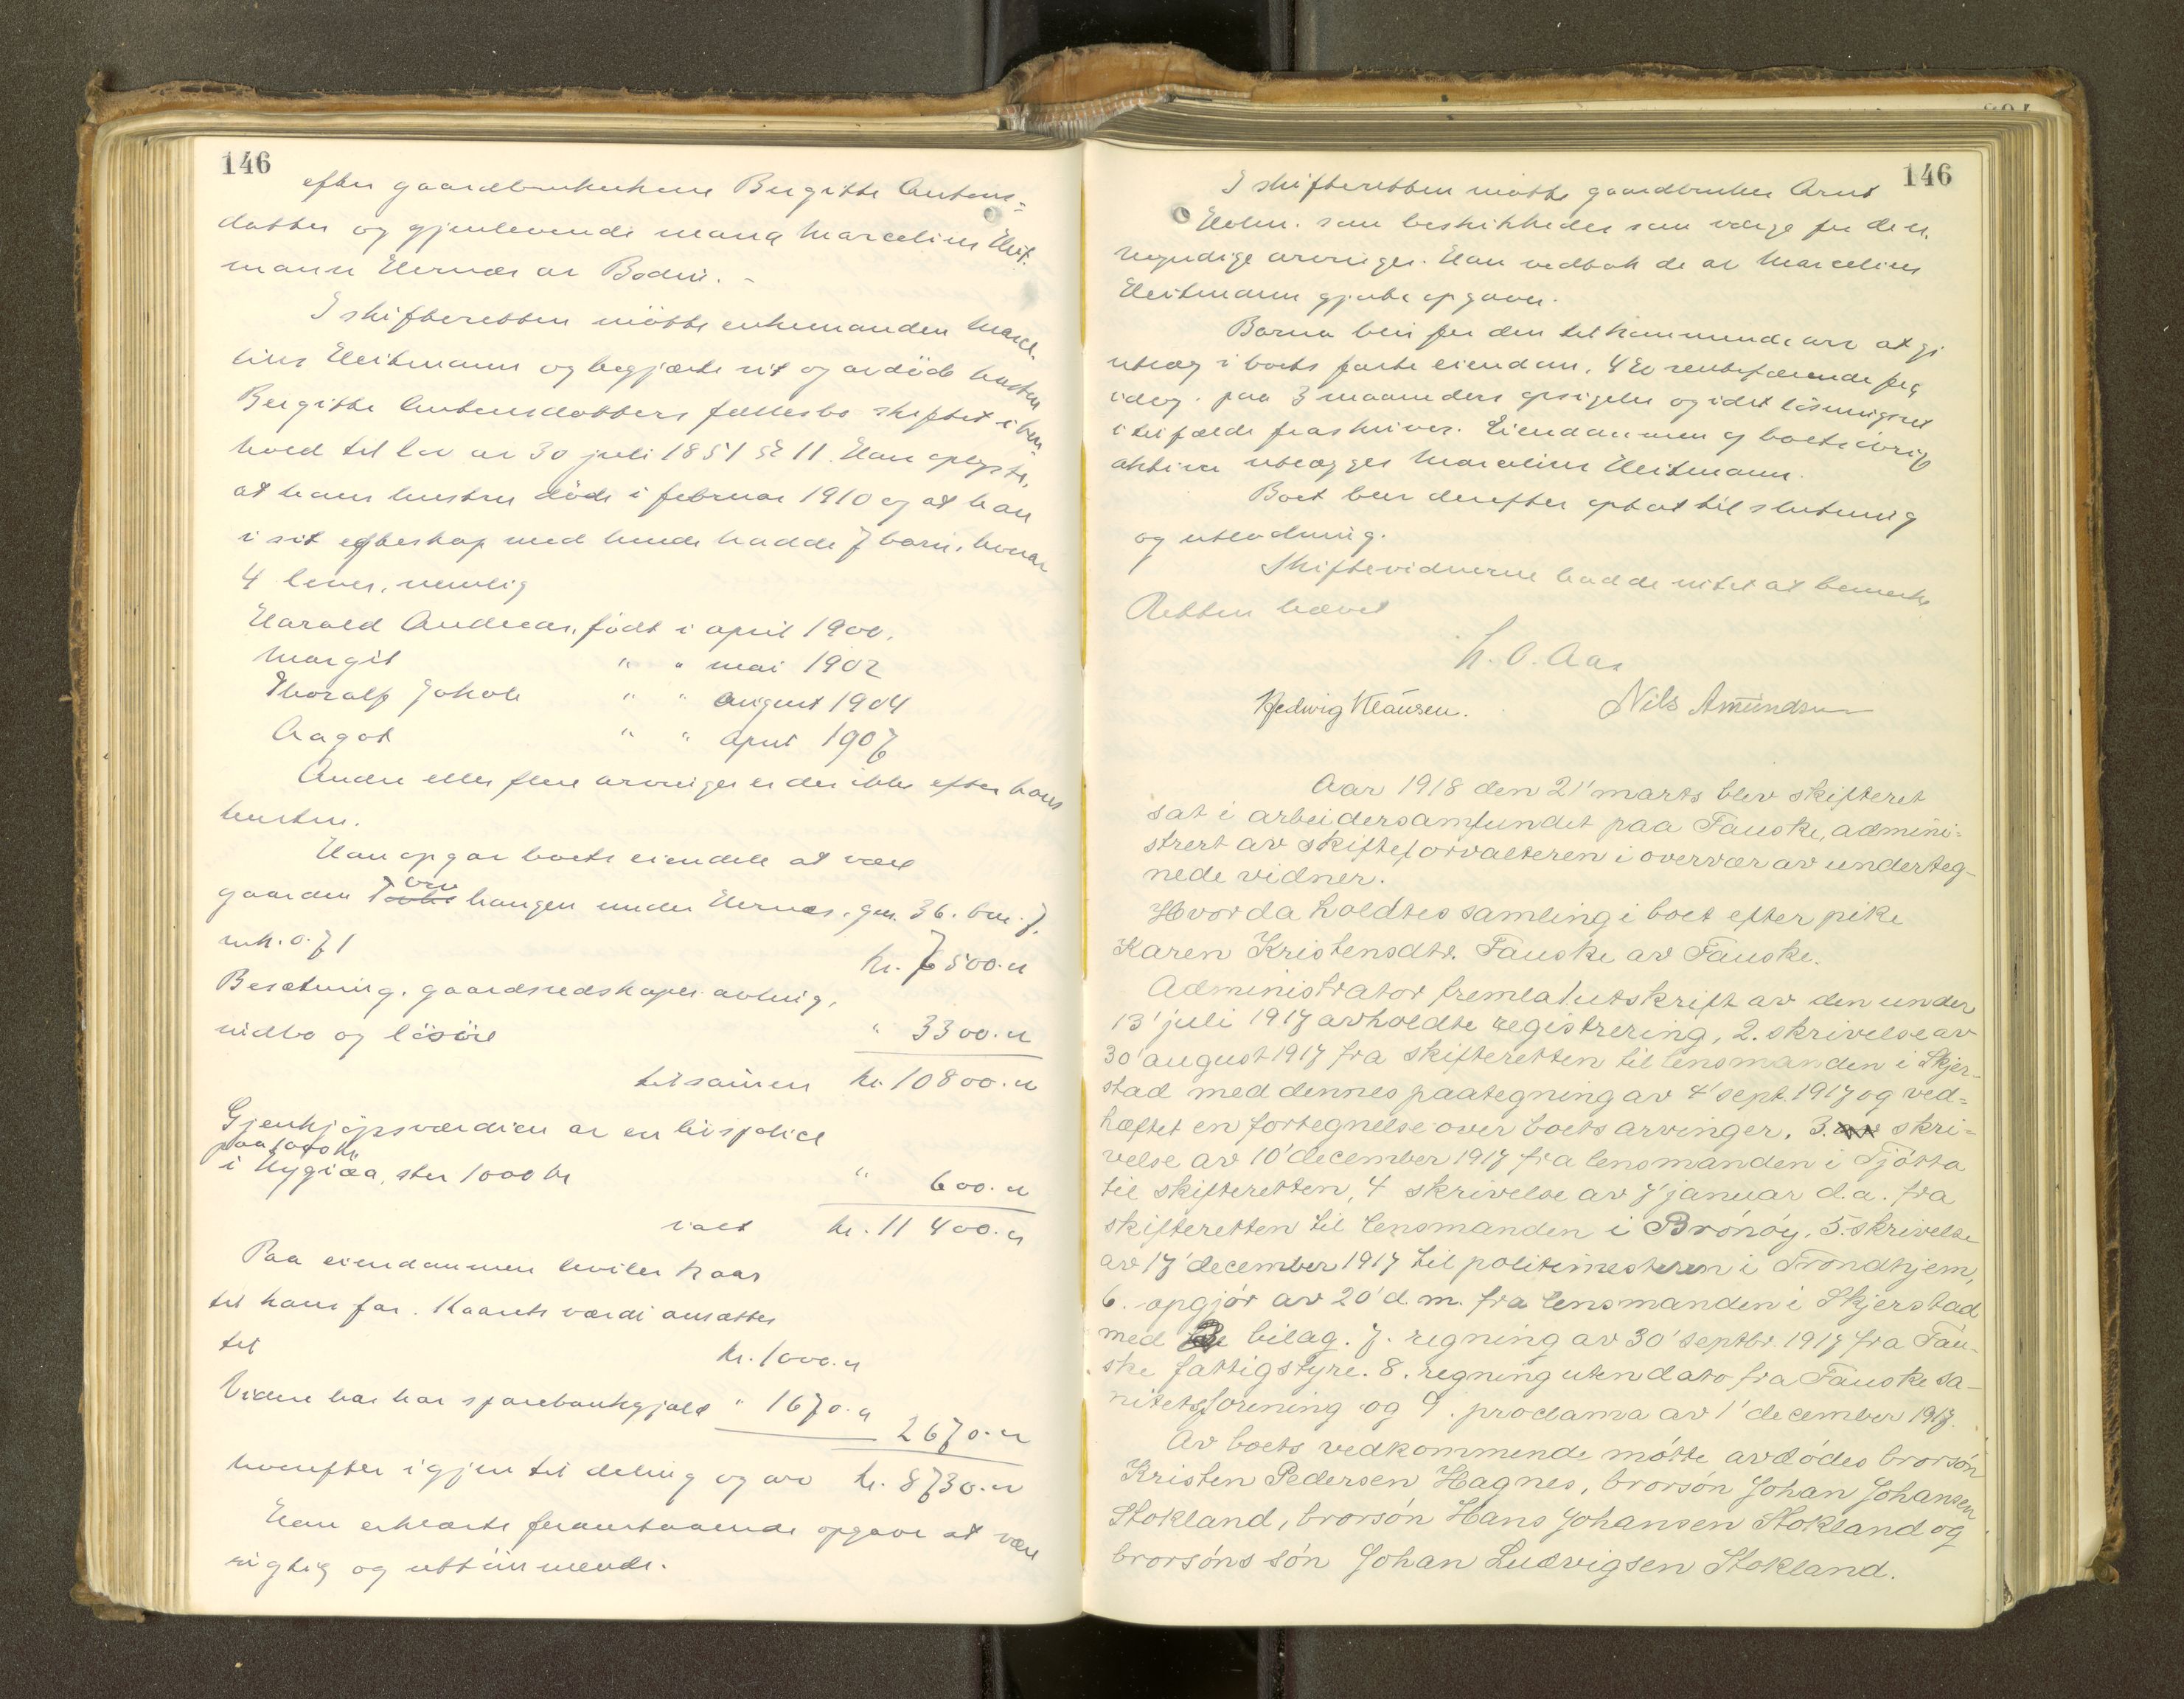 146
efter gaardbrukerkone Bergitte Antons=
datter og gjenlevende mand Marcelius Heit-
mann Hernes av Bodin. -
I skifteretten mötte enkemanden Marce-
lius Heitmann og begjærte sit og avdöde hustru
Bergitte Antonsdatters fællesbo skiftet i hen-
hold til lov av 30 juli 1851 § 11. Han oplyste,
at hans hustru döde i februar 1910 og at han
i sit egteskap med hende hadde 7 barn, hvorav
4 lever, nemlig
Harald Andreas, födt i april 1900.
Margit " " mai 1902
Thoralf Jakob " " august 1904
Aagot " " april 1907
Andre eller flere arvinger er der ikke efter hans
hustru.
Han opgav boets eiendele at være
gaarden haugen under Hernes, gnr. 36. bnr. 7.
kr. 7500.-
Besetning, gaardsredskaper avling,
indbo og lösöre " 3300.-
tilsammen kr. 10800.-
Gjenkjöpsværdien av en livspolice
i Hygiæa, stor 1000 kr " 600.-
ialt kr. 11400.-
Paa eiendommen hviler kaar
til hans far. Kaarets værdi ansættes
til kr. 1000.-
Videre har han sparebankgjæld " 1670.-
2670.-
hvorefter igjen til deling og arv kr. 8730.-
Han erklærte foranstaaende opgave at være
rigtig og uttömmende.
146
I skifteretten mötte gaardbruker Arnt
Holm. som beskikkedes som værge for de u-
myndige arvinger. Han vedtok de av Marcelius
Heitmann gjorte opgaver.
Barna blir for den tilkommende arv at gi
utlæg i boets faste eiendom, 4 % rentebærende fra
idag. paa 3 maaneders opsigelse og idet lösningsret
i tilfælde fraskrives. Eiendommen og boets övrige
aktiva utlægges Marcelius Heitmann.
Boet blev derefter optat til slutning
og utlodning.
Skiftevidnerne hadde intet at bemerke
Retten hævet
H. O. Aas
Hedvig Klausen. Nils Amundsen
Aar 1918 den 21' marts blev skifteret
sat i arbeidersamfundet paa Fauske, admini=
strert av skifteforvalteren i overvær av underteg-
nede vidner.
Hvorda holdtes samling i boet efter pike
Karen Kristensdtr. Fauske av Fauske.
Administrator fremla 1 utskrift av den under
13' juli 1917 avholdte registrering, 2. skrivelse av
30' august 1917 fra skifteretten til lensmanden i Skjer-
stad med dennes paategning av 4' sept. 1917 og ved=
hæftet en fortegnelse over boets arvinger, 3. skri=
velse av 10' december 1917 fra lensmanden i Tjötta
til skifteretten, 4 skrivelse av 7' januar d.a. fra
skifteretten til lensmanden i Brönöy, 5. skrivelse
av 17' december 1917 til politimesteren i Trondhjem,
6. opgjör av 20' d. m. fra lensmanden i Skjerstad
med 2 bilag. 7. regning av 30' septbr. 1917 fra Fau-
ske fattigstyre. 8. regning uten dato fra Fauske sa-
nitetsforening og 9. proclama av 1' december 1917.
Av boets vedkommende mötte avdödes brorsön
Kristen Pedersen Hagnes, brorsön Johan Johansen
Stokland, brorsön Hans Johansen Stokland og
brorsöns sön Johan Ludvigsen Stokland.